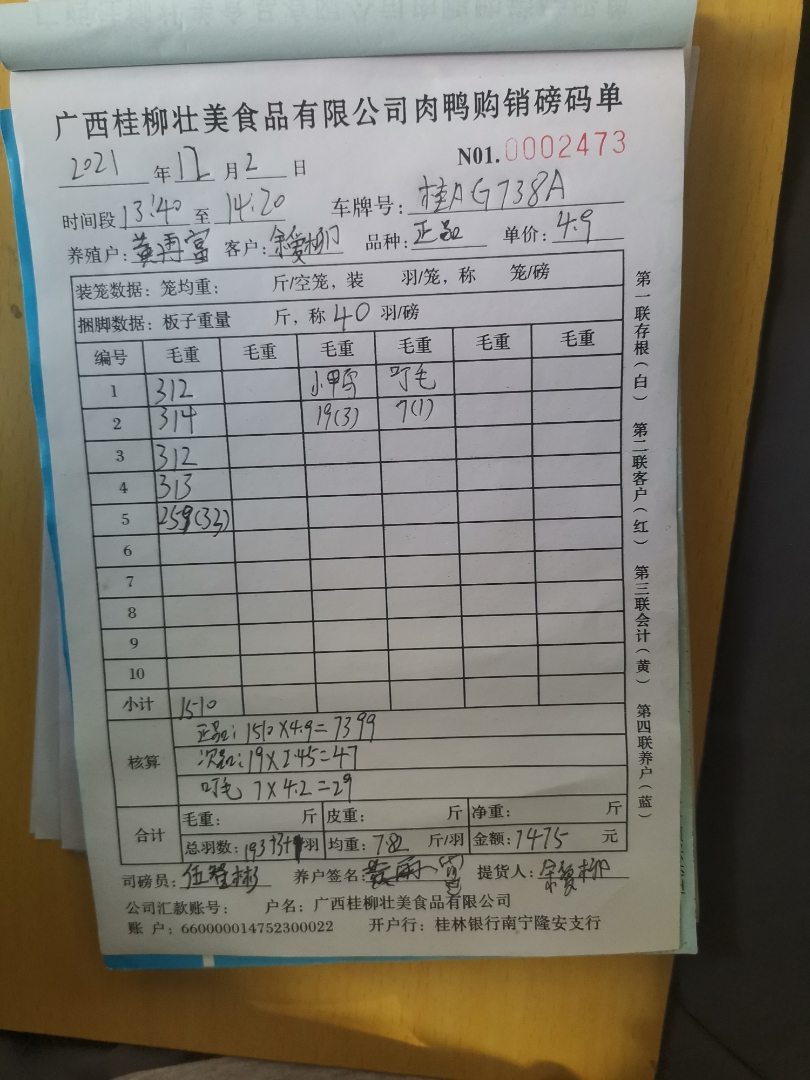 广西桂柳壮美食品有限公司肉鸭购销磅码单
2021 年 12 月 2 日 N01.0002473
时间段 13:40 至 14:20 车牌号: 桂AG738A
养殖户: 黄再富 客户: 余爱柳 品种: 正品 单价: 4.9
装笼数据: 笼均重: 斤/空笼, 装 羽/笼, 称 笼/磅
捆脚数据: 板子重量 斤, 称 40 羽/磅
编号 毛重 毛重 毛重 毛重 毛重 毛重
1 312 小甲鸟 叮毛
2 314 19(3) 7(1)
3 312
4 313
5 259(33)
6
7
8
9
10
小计 1510
核算 正品: 1510×4.9=7399
次品: 19×2.45=47
叮毛 7×4.2=29
合计 毛重: 斤 皮重: 斤 净重: 斤
总羽数: 193+3+1羽 均重: 7.82 斤/羽 金额: 7475 元
司磅员: 伍 彬 养户签名: 黄 富 提货人: 余爱柳
公司汇款账号: 户名: 广西桂柳壮美食品有限公司
账 户: 660000014752300022 开户行: 桂林银行南宁隆安支行
第一联存根(白) 第二联客户(红) 第三联会计(黄) 第四联养户(蓝)